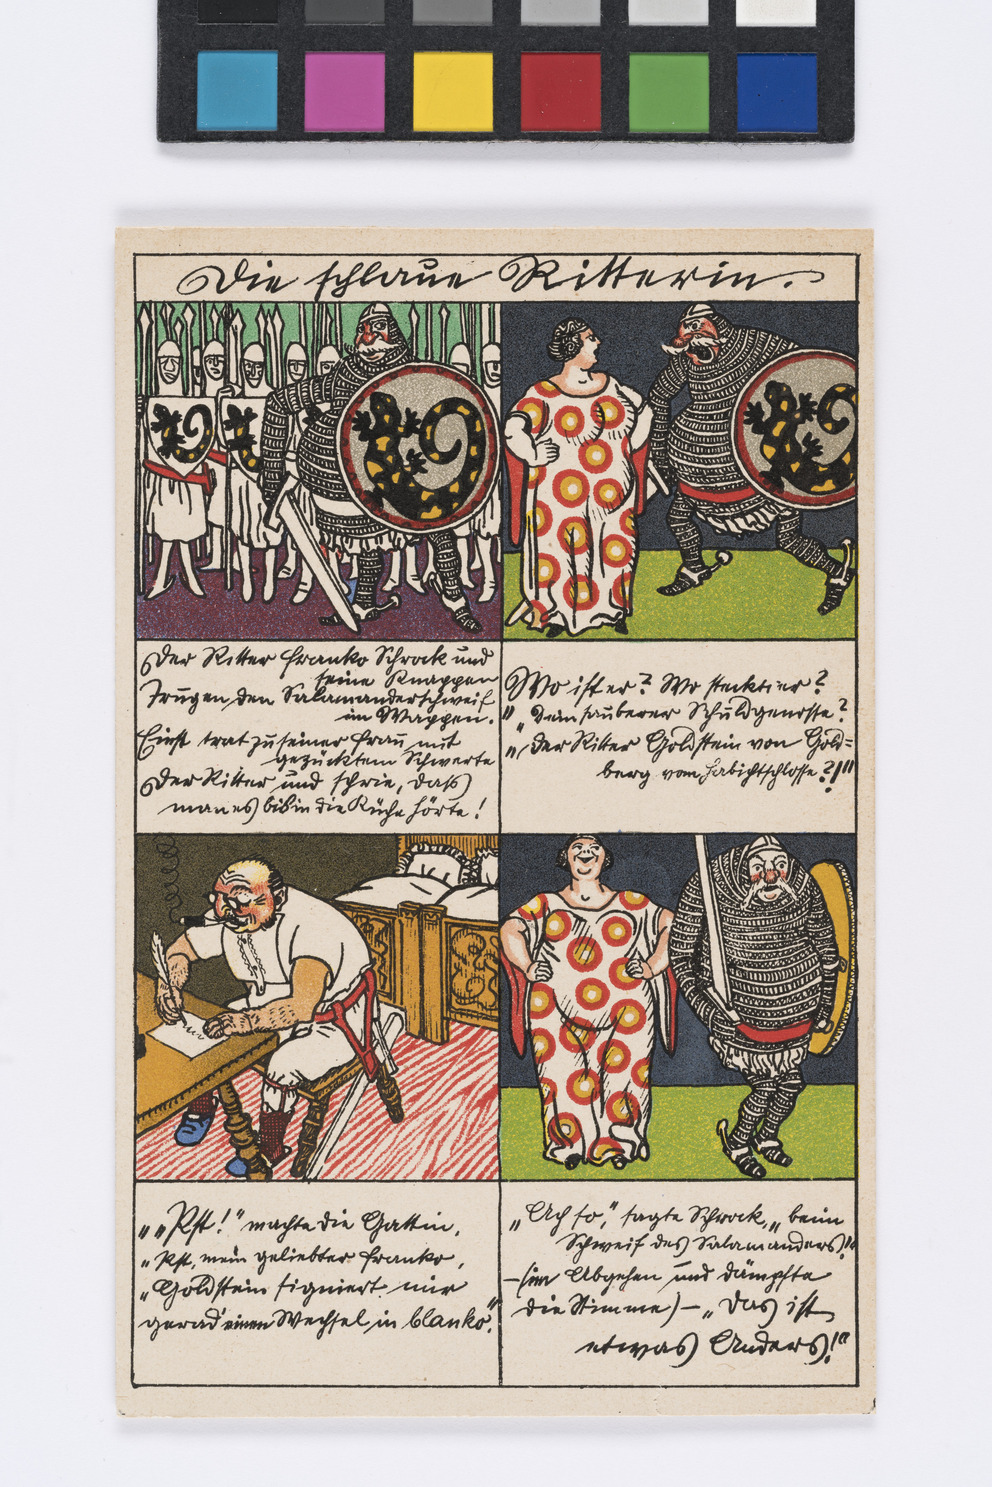 Die schlaue Ritterin.
Der Ritter Franko Schrock und
seine Knappen
Trugen den Salamanderschweif
im Wappen.
Einst trat zu seiner Frau mit
gezücktem Schwerte
Der Ritter und schrie, dass
man es bis in die Küche hörte!
Wo ist er? Wo steckt er?
„„Dein sauberer Schuldgenosse?
„„Der Ritter Goldstein von Gold=
berg vom Habichtschlosse?!““
„„Pst!“ machte die Gattin,
„Pst, mein geliebter Franko,
„Goldstein signiert mir
gerad' einen Wechsel in blanko.“
„Ach so,“ sagte Schrock, „beim
Schweif des Salamanders!“
–(im Abgehen und dämpfte
die Stimme)– „Das ist
etwas Anders!“